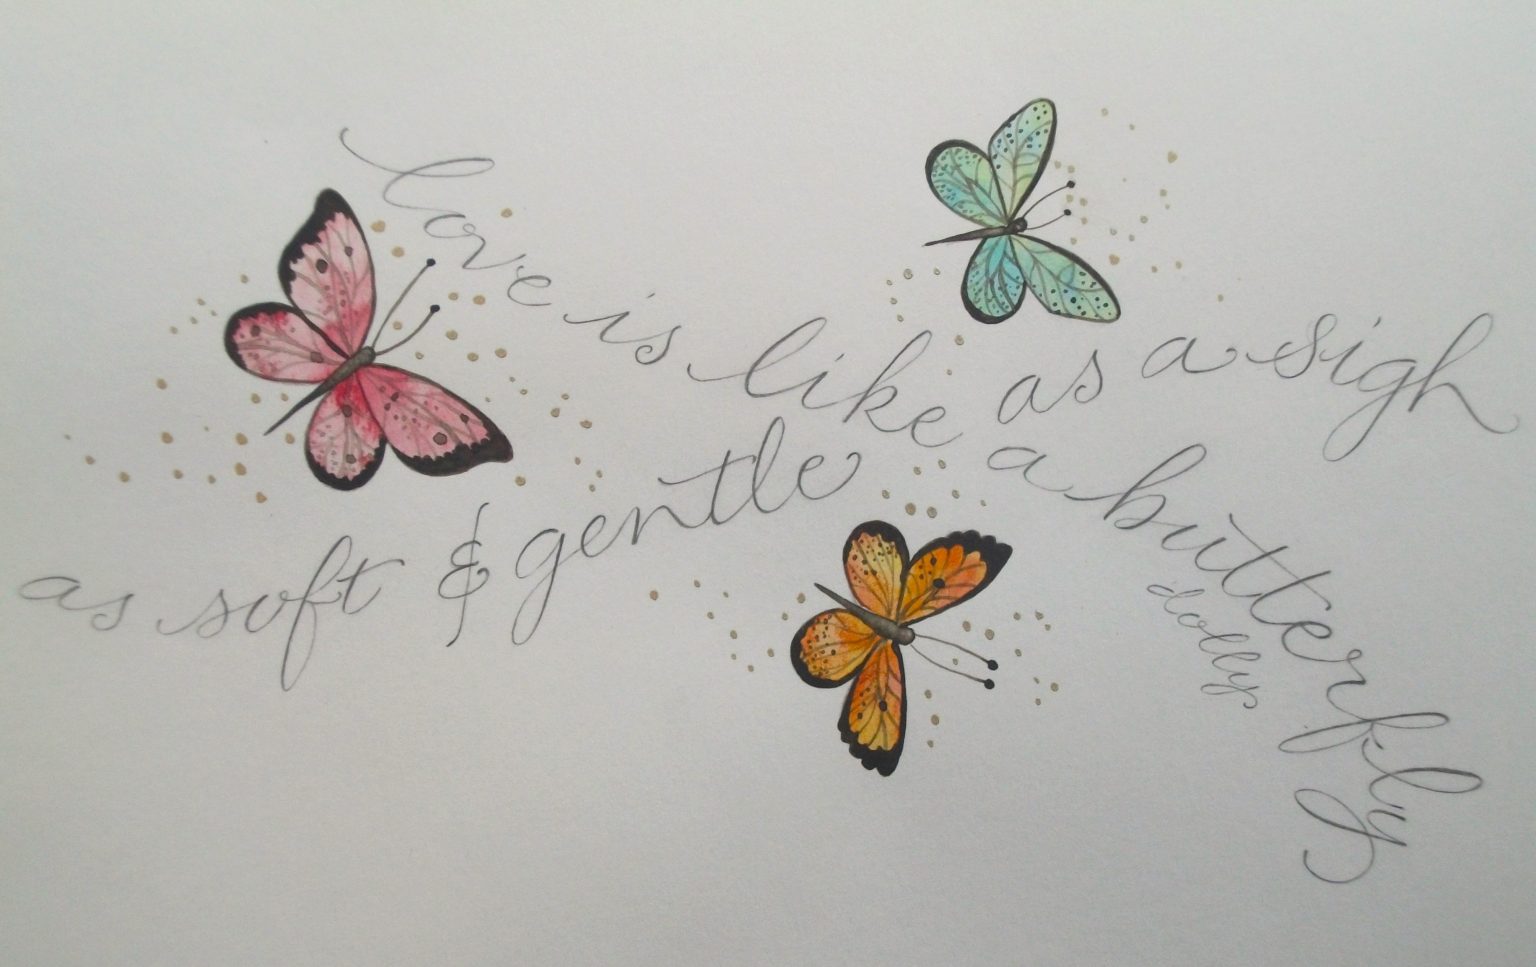 love is like a butterfly
as soft & gentle as a sigh
dolly